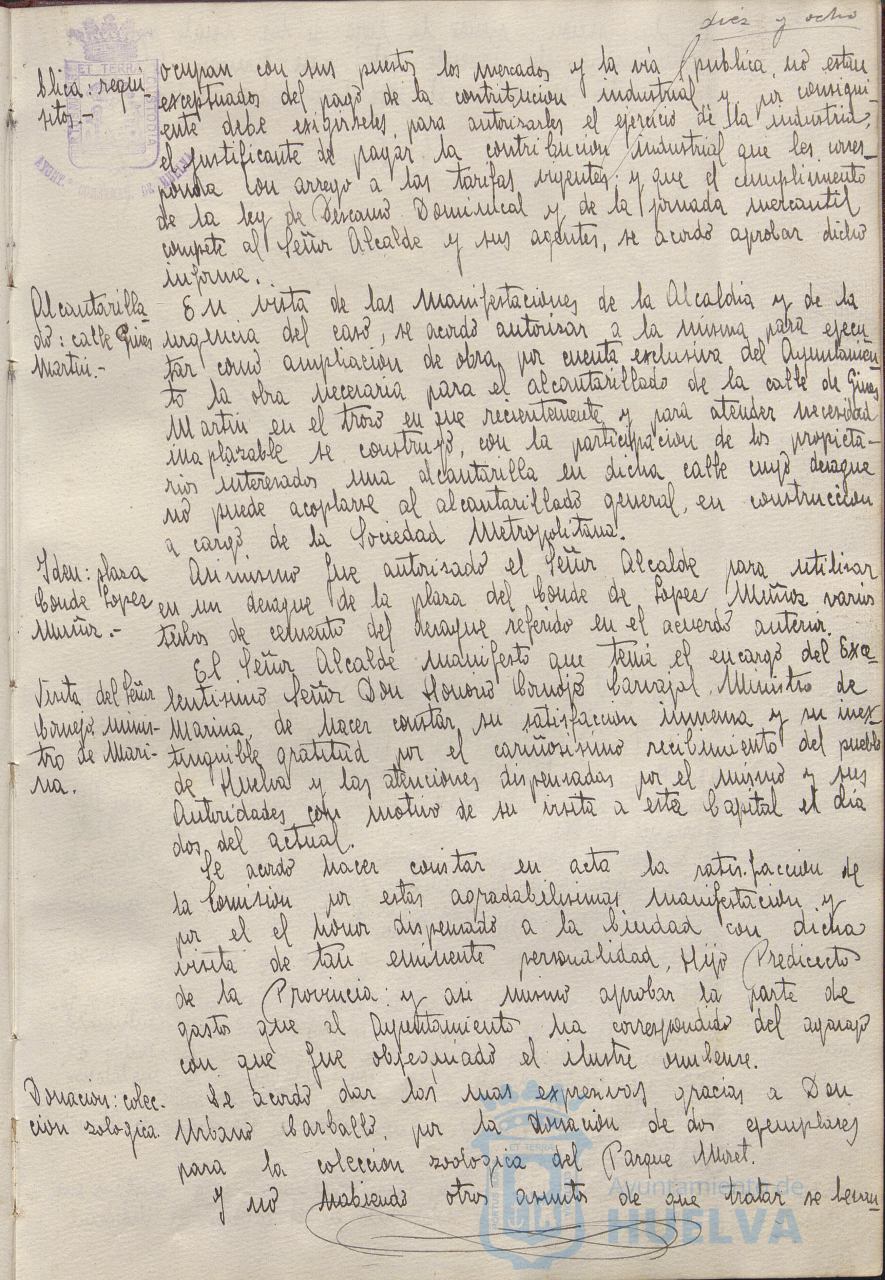 diez y ocho
blica: requi-
sitos.-
ocupan con sus puestos los mercados y la vía publica, no estan
exceptuados del pago de la contribucion industrial y por consigui-
ente debe exigirseles, para autorizarles el ejercicio de la industria,
el justificante de pagar la contribucion industrial que les corres-
ponda con arreglo a las tarifas vigentes: y que el cumplimento
de la ley de Descanso Dominical y de la jornada mercantil
compete al Señor Alcalde y sus agentes, se acordo aprobar dicho
informe.
Alcantarilla-
do: calle Gines
Martin.-
En vista de las manifestaciones de la Alcaldia y de la
urgencia del caso, se acordo autorizar a la misma para ejecu-
tar como ampliacion de obra, por cuenta exclusiva del Ayuntamien-
to la obra necesaria para el alcantarillado de la calle de Gines
Martin en el trozo en que recientemente y para atender necesidad
inaplazable se construyó, con la participacion de los propieta-
rios interesados una alcantarilla en dicha calle cuyo desague
no puede acoplarse al alcantarillado general, en construcción
a cargo de la Sociedad Metropolitana.
Iden: plaza
Conde Lopez
Muñoz.-
Asimismo fue autorizado el Señor Alcalde para utilizar
en un desague de la plaza del Conde de Lopez Muñoz varios
tubos de cemento del desague referido en el acuerdo anterior.
Visita del Señor
Cornejo, minis-
tro de Mari-
na.
El Señor Alcalde manifesto que tenia el encargo del Exce-
lentisimo Señor Don Honorio Cornejo Carvajal, Ministro de
Marina, de hacer constar, su satisfaccion inmensa y su inex-
tinguible gratitud por el cariñosisimo recibimiento del pueblo
de Huelva y las atenciones dispensadas por el mismo y sus
Autoridades con motivo de su visita a esta Capital el dia
dos del actual.
Se acordo hacer constar en acta la satisfaccion de
la Comision por estas agradabilisimas manifestacion y
por el el honor dispensado a la Ciudad con dicha
visita de tan eminente personalidad, Hijo Predilecto
de la Provincia: y asi mismo aprobar la parte de
gastos que al Ayuntamiento ha correspondido del agasajo
con que fue obsequiado el ilustre onubense.
Donacion: colec-
cion zologica.
Se acordo dar las mas expresivas gracias a Don
Urbano Carballo, por la donación de dos ejemplares
para la coleccion zoologica del Parque Moret.
Y no habiendo otros asuntos de que tratar se levan-
Ayuntamiento de
HUELVA